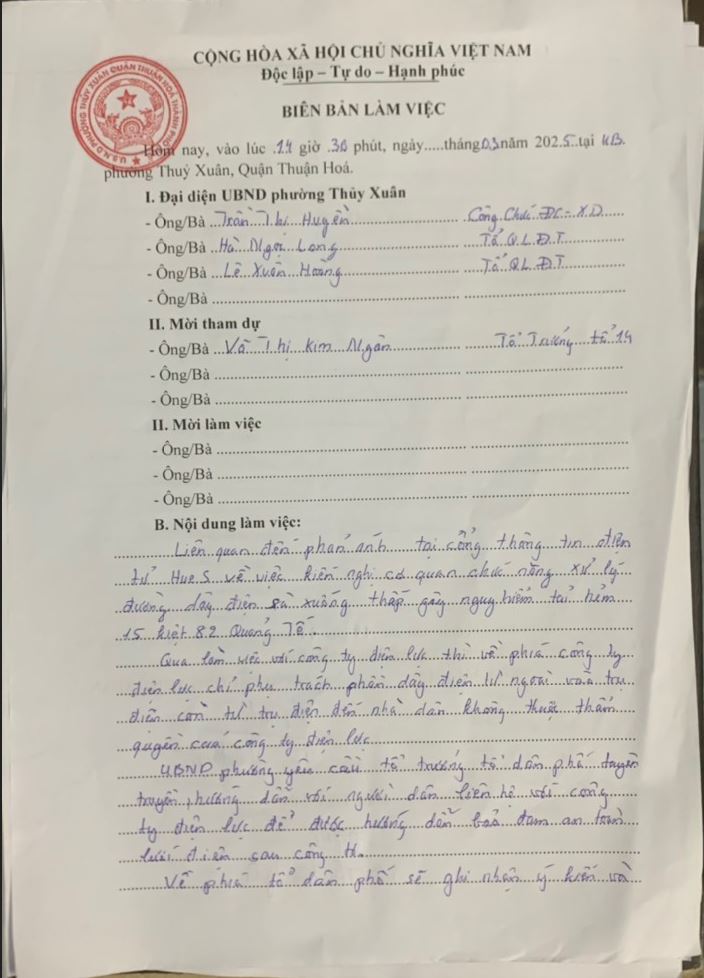 CỘNG HÒA XÃ HỘI CHỦ NGHĨA VIỆT NAM
Độc lập – Tự do – Hạnh phúc
BIÊN BẢN LÀM VIỆC
U.B.N.D PHƯỜNG THỦY XUÂN QUẬN THUẬN HOÁ THÀNH PHỐ
Hôm nay, vào lúc 14 giờ 30 phút, ngày.....tháng 03 năm 2025 tại UB.
phường Thuỷ Xuân, Quận Thuận Hoá.
I. Đại diện UBND phường Thủy Xuân
- Ông/Bà Trần Thị Huyền Công Chức ĐC-XD
- Ông/Bà Hà Ngọc Long Tổ Q.L.Đ.T
- Ông/Bà Lê Xuân Hoàng Tổ QL.Đ.T
- Ông/Bà
II. Mời tham dự
- Ông/Bà Võ Thị Kim Ngân Tổ Trưởng tổ 14
- Ông/Bà
- Ông/Bà
II. Mời làm việc
- Ông/Bà
- Ông/Bà
- Ông/Bà
B. Nội dung làm việc:
Liên quan đến phản ánh tại cổng thông tin điện
tử Hue.S về việc kiến nghị cơ quan chức năng xử lý
đường dây điện sà xuống thấp gây nguy hiểm tại hẻm
15 kiệt 82 Quảng Tế.
Qua làm việc với công ty điện lực thì về phía công ty
điện lực chỉ phụ trách phần dây điện từ ngoài vào trụ
điện còn từ trụ điện đến nhà dân không thuộc thẩm
quyền của công ty điện lực
UBND phường yêu cầu tổ trưởng tổ dân phố tuyên
truyền, hướng dẫn với người dân liên hệ với công
ty điện lực để được hướng dẫn bảo đảm an toàn
lưới điện sau công tơ.
Về phía tổ dân phố sẽ ghi nhận ý kiến và